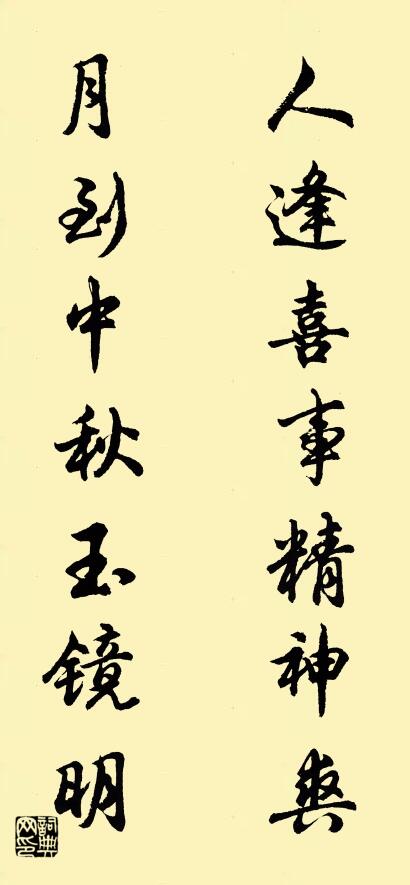 人逢喜事精神爽
月到中秋玉镜明
词典网印